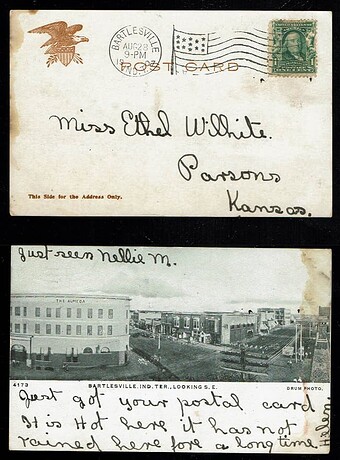 BARTLESVILLE
AUG 28
9-PM
IND. T.
POST CARD
Miss Ethel Wilhite.
Parsons
Kansas.
This Side for the Address Only.
Just seen Nellie M.
THE ALMEDA
4173
BARTLESVILLE, IND. TER., LOOKING S. E.
DRUM PHOTO.
Just got your postal card
It is Hot here it has not
rained here fore a long time
Helen.